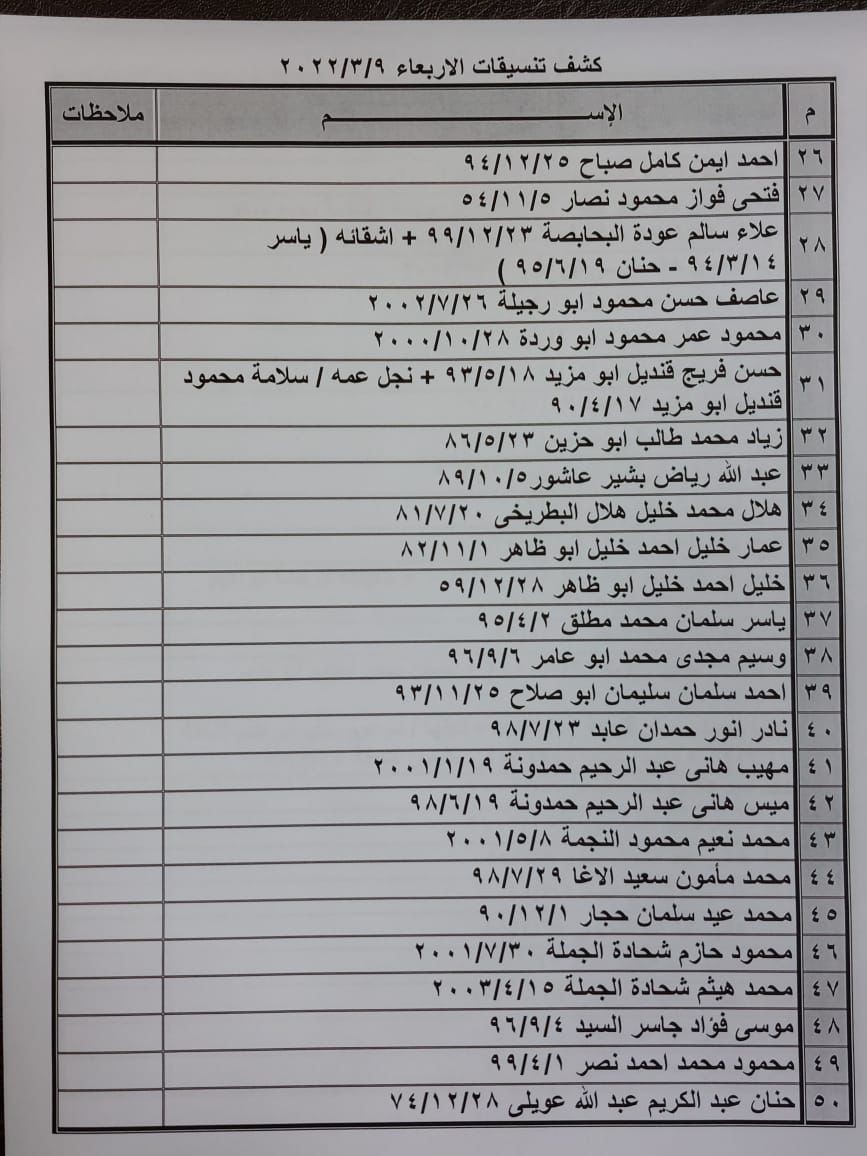 كشف تنسيقات الاربعاء ٢٠٢٢/٣/٩
م الإســـــــــــم ملاحظات
٢٦ احمد ايمن كامل صباح ٩٤/١٢/٢٥
٢٧ فتحى فواز محمود نصار ٥٤/١١/٥
٢٨ علاء سالم عودة البحابصة ٩٩/١٢/٢٣ + اشقائه ( ياسر
٩٤/٣/١٤ - حنان ٩٥/٦/١٩ )
٢٩ عاصف حسن محمود ابو رجيلة ٢٠٠٢/٧/٢٦
٣٠ محمود عمر محمود ابو وردة ٢٠٠٠/١٠/٢٨
٣١ حسن فريج قنديل ابو مزيد ٩٣/٥/١٨ + نجل عمه / سلامة محمود
قنديل ابو مزيد ٩٠/٤/١٧
٣٢ زياد محمد طالب ابو حزين ٨٦/٥/٢٣
٣٣ عبد الله رياض بشير عاشور٨٩/١٠/٥
٣٤ هلال محمد خليل هلال البطريخى ٨١/٧/٢٠
٣٥ عمار خليل احمد خليل ابو ظاهر ٨٢/١١/١
٣٦ خليل احمد خليل ابو ظاهر ٥٩/١٢/٢٨
٣٧ ياسر سلمان محمد مطلق ٩٥/٤/٢
٣٨ وسيم مجدى محمد ابو عامر ٩٦/٩/٦
٣٩ احمد سلمان سليمان ابو صلاح ٩٣/١١/٢٥
٤٠ نادر انور حمدان عابد ٩٨/٧/٢٣
٤١ مهيب هانى عبد الرحيم حمدونة ٢٠٠١/١/١٩
٤٢ ميس هانى عبد الرحيم حمدونة ٩٨/٦/١٩
٤٣ محمد نعيم محمود النجمة ٢٠٠١/٥/٨
٤٤ محمد مأمون سعيد الاغا ٩٨/٧/٢٩
٤٥ محمد عيد سلمان حجار ٩٠/١٢/١
٤٦ محمود حازم شحادة الجملة ٢٠٠١/٧/٣٠
٤٧ محمد هيثم شحادة الجملة ٢٠٠٣/٤/١٥
٤٨ موسى فؤاد جاسر السيد ٩٦/٩/٤
٤٩ محمود محمد احمد نصر ٩٩/٤/١
٥٠ حنان عبد الكريم عبد الله عويلى ٧٤/١٢/٢٨